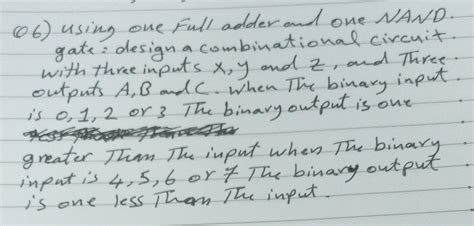 Q6) Using one Full adder and one NAND.
gate: design a combinational circuit.
with three inputs x, y and z, and Three.
outputs A, B and C. when The binary input.
is 0, 1, 2 or 3 The binary output is one
greater Than The input when The binary
input is 4, 5, 6 or 7 The binary output
is one less Than The input.